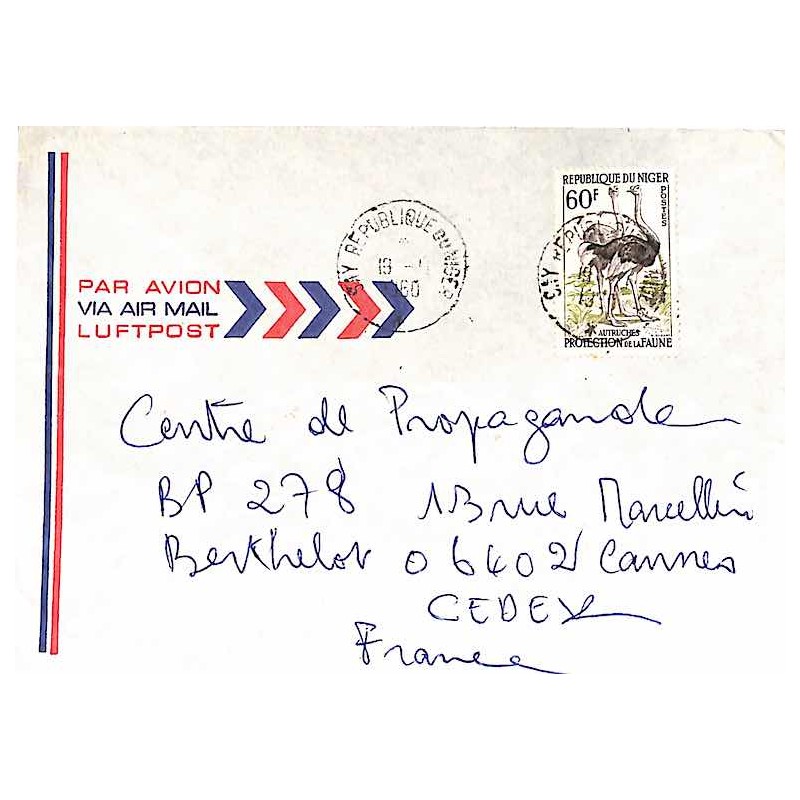 REPUBLIQUE DU NIGER
60F
POSTES
AUTRUCHES
PROTECTION DE LA FAUNE
SAY REPUBLIQUE DU NIGER
15
60
SAY REPU
PAR AVION
VIA AIR MAIL
LUFTPOST
Centre de Propagande
BP 278 13 rue Marcellin
Berthelot 06402 Cannes
CEDEX
France